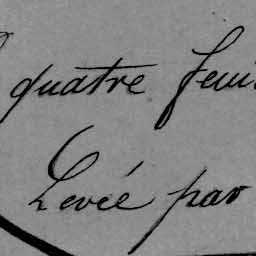 quatre feui
Levée par